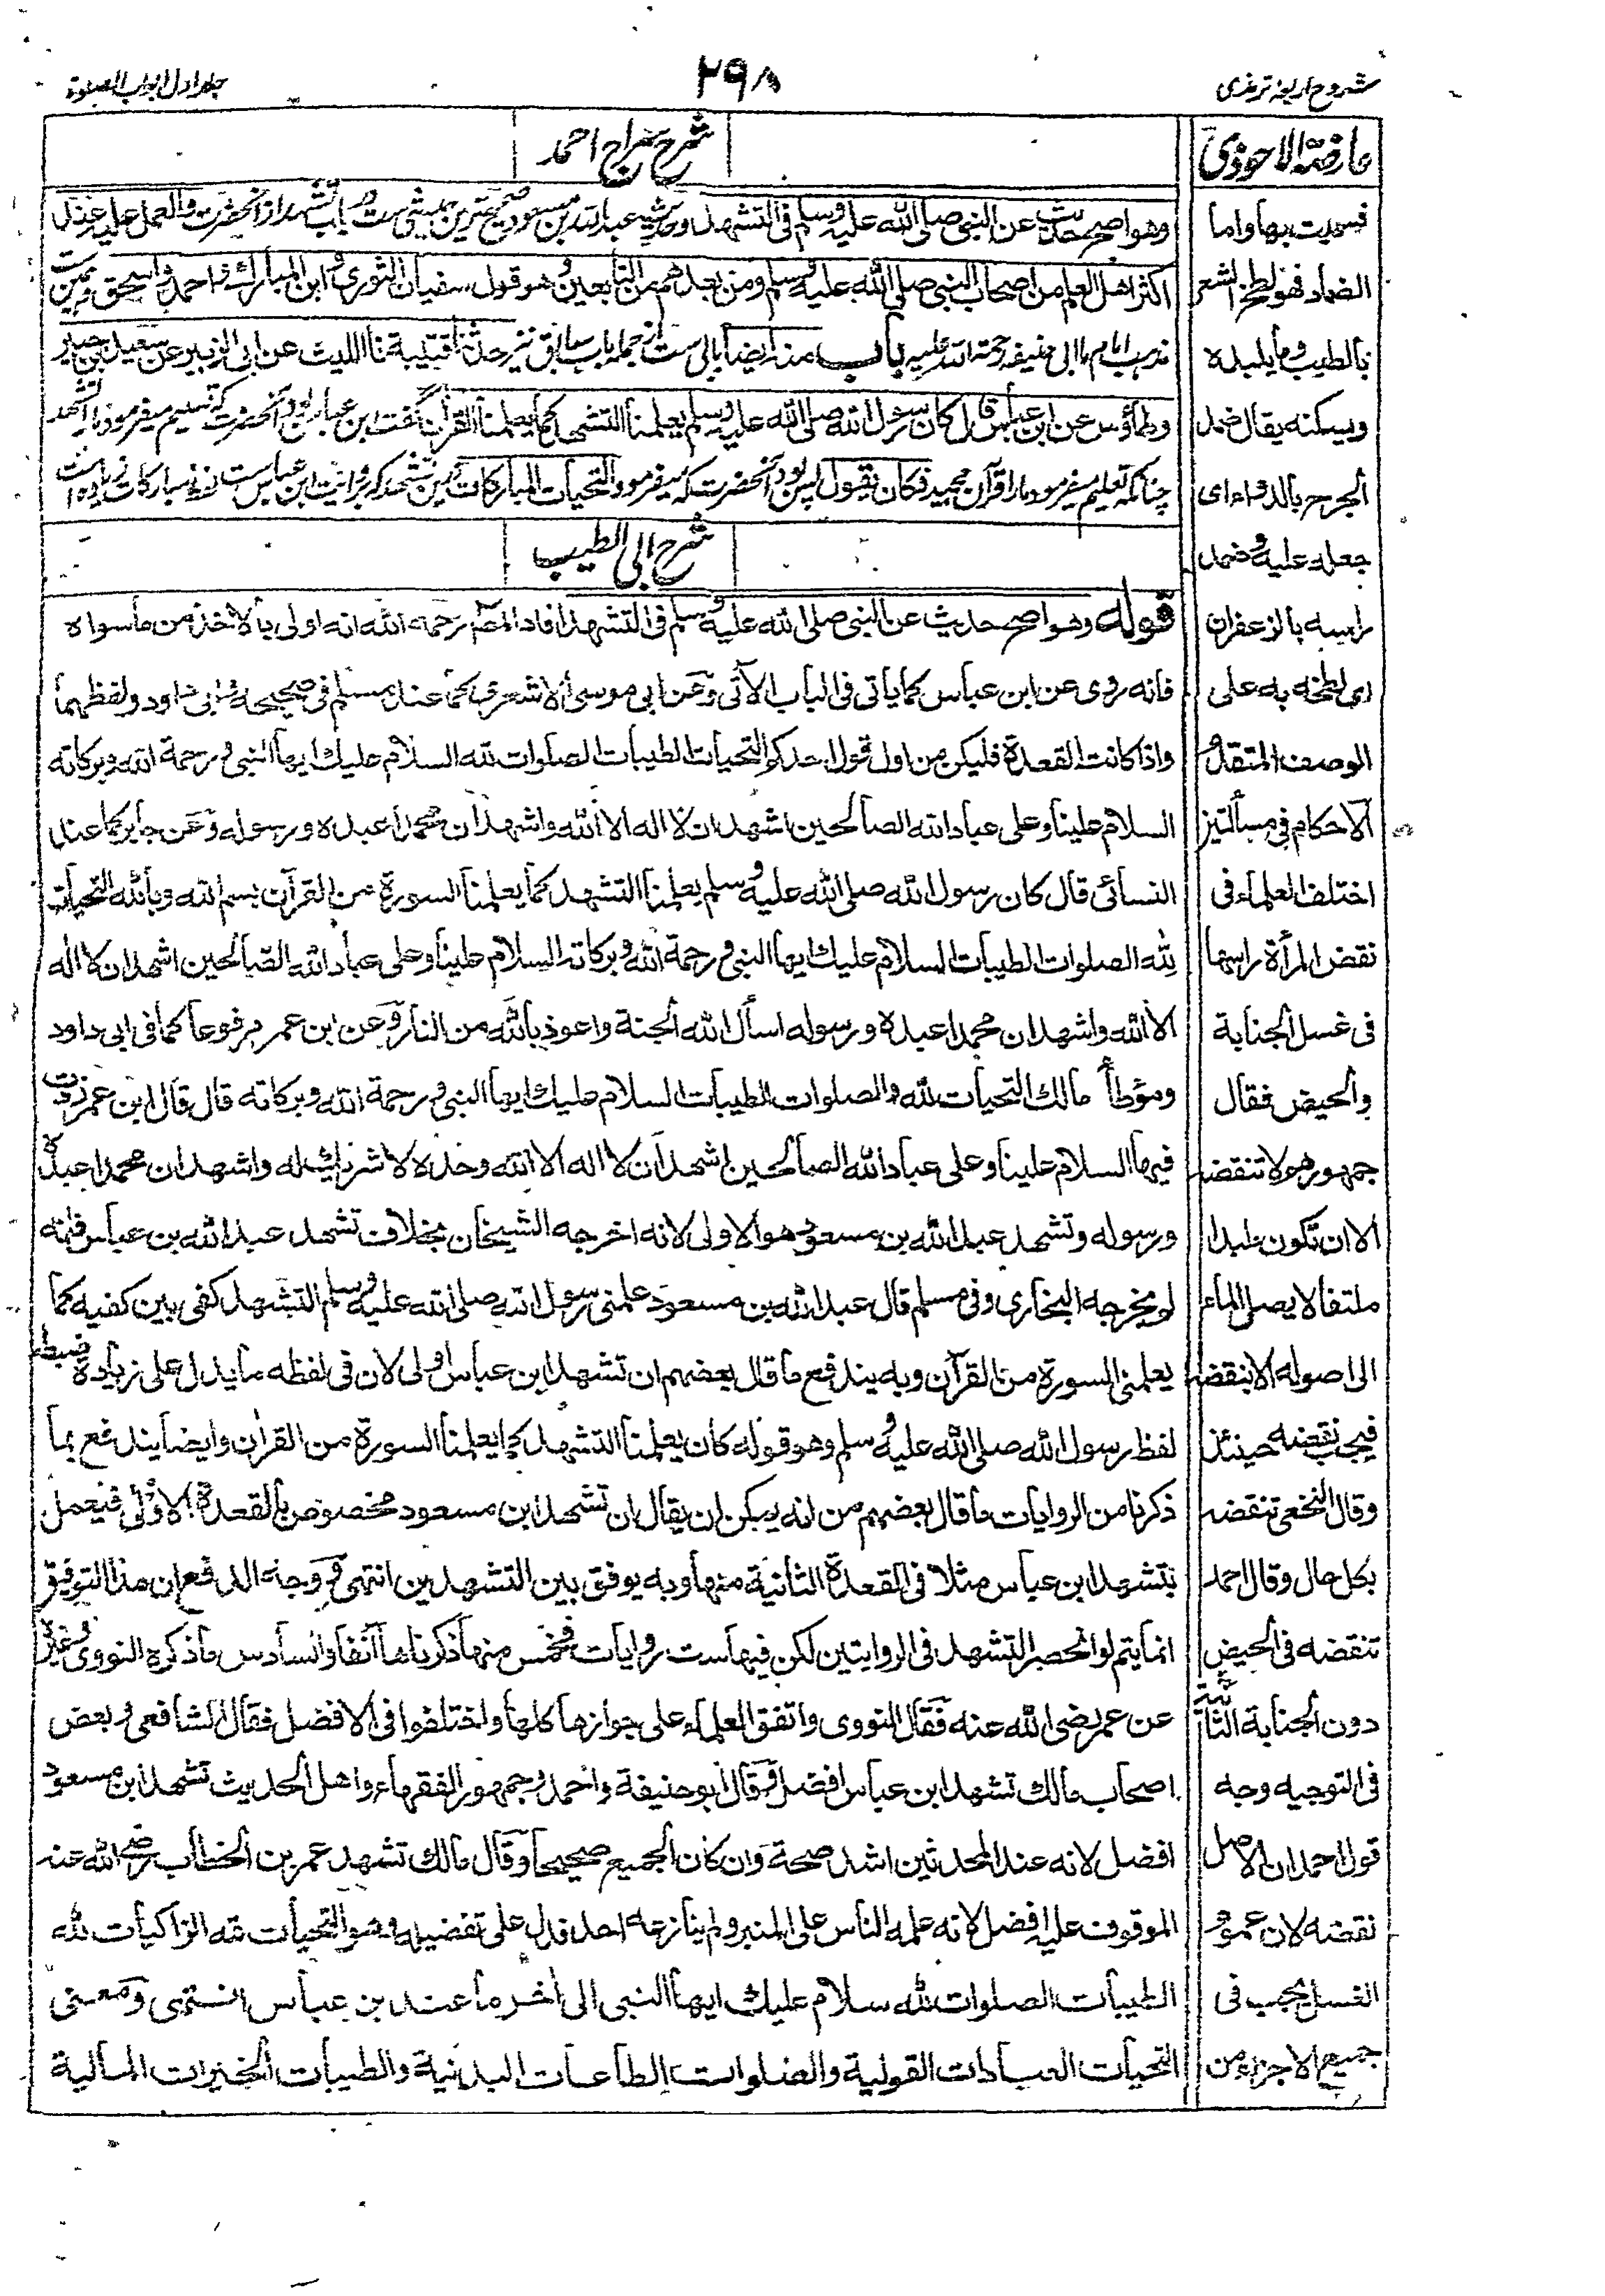 شروح اربعہ ترمذی
۲۹۸
جلد اول ابواب الصلوة
عارضة الاحوذی
فسمیت بها واما
الضماد فهو لطخ الشعر
بالطیب وما یلبده
ویسکنه یقال ضمد
الجرح بالدواء ای
جعله علیه وضمد
راسه بالزعفران
ای لطخه به علی
الوصف المتقدم
الاحکام فی مسألتین
اختلف العلماء فی
نقض المرأة راسها
فی غسل الجنابة
والحیض فقال
جمهورهم لا تنقضه
الا ان تکون ملبدا
ملتفا لا یصل الماء
الی اصوله الا بنقضه
فیجب نقضه حینئذ
وقال النخعی تنقضه
بکل حال وقال احمد
تنقضه فی الحیض
دون الجنابة الثانیة
فی التوجیه وجه
قول احمد ان الاصل
نقضه لان عموم
الغسل یجب فی
جمیع الاجزاء من
شرح سراج احمد
وهو اصح حدیث عن النبی صلی الله علیه وسلم فی التشهد وحدیث عبد الله بن مسعود صحیح ترین حدیثی ست در باب تشهد از آنحضرت والعمل علیه عند
اکثر اهل العلم من اصحاب النبی صلی الله علیه وسلم ومن بعدهم من التابعین وهو قول سفیان الثوری وابن المبارک واحمد واسحق وهمین ست
مذهب امام ما ابی حنیفه رحمة الله علیه باب منه ایضا بابی ست از جمله باب سابق نیز حدثنا قتیبة ثنا اللیث عن ابی الزبیر عن سعید بن جبیر
وطاؤس عن ابن عباس قال کان رسول الله صلی الله علیه وسلم یعلمنا التشهد کما یعلمنا القرآن گفت ابن عباس بود آنحضرت که تعلیم میفرمود ما را تشهد
چنانکه تعلیم میفرمود ما را قرآن مجید فکان یقول پس بود آنحضرت که میفرمود التحیات المبارکات درین تشهد که بروایت ابن عباس ست لفظ مبارکات زیاده است
شرح ابی الطیب
قوله وهو اصح حدیث عن النبی صلی الله علیه وسلم فی التشهد افاد المصنف رحمه الله انه اولی بالاخذ من ما سواه
فانه روی عن ابن عباس کما یاتی فی الباب الآتی وعن ابی موسی الاشعری کما عند مسلم فی صحیحه وابی داود ولفظهما
واذا کانت القعدة فلیکن من اول قول احدکم التحیات الطیبات الصلوات لله السلام علیك ایها النبی ورحمة الله وبرکاته
السلام علینا وعلی عباد الله الصالحین اشهد ان لا اله الا الله واشهد ان محمدا عبده ورسوله وعن جابر کما عند
النسائی قال کان رسول الله صلی الله علیه وسلم یعلمنا التشهد کما یعلمنا السورة من القرآن بسم الله وبالله التحیات
لله الصلوات الطیبات السلام علیك ایها النبی ورحمة الله وبرکاته السلام علینا وعلی عباد الله الصالحین اشهد ان لا اله
الا الله واشهد ان محمدا عبده ورسوله اسأل الله الجنة واعوذ بالله من النار وعن ابن عمر مرفوعا کما فی ابی داود
ومؤطأ مالك التحیات لله والصلوات الطیبات السلام علیك ایها النبی ورحمة الله وبرکاته قال قال ابن عمر زدت
فیها السلام علینا وعلی عباد الله الصالحین اشهد ان لا اله الا الله وحده لا شریك له واشهد ان محمدا عبده
ورسوله وتشهد عبد الله بن مسعود هو الاولی لانه اخرجه الشیخان بخلاف تشهد عبد الله بن عباس فانه
لم یخرجه البخاری وفی مسلم قال عبد الله بن مسعود علمنی رسول الله صلی الله علیه وسلم التشهد کفی بین کفیه کما
یعلمنی السورة من القرآن وبه یندفع ما قال بعضهم ان تشهد ابن عباس اولی لان فی لفظه ما یدل علی زیادة ضبط
لفظ رسول الله صلی الله علیه وسلم وهو قوله کان یعلمنا التشهد کما یعلمنا السورة من القران وایضا یندفع بما
ذکرنا من الروایات ما قال بعضهم من انه یمکن ان یقال ان تشهد ابن مسعود مخصوص بالقعدة الاولی فیعمل
بتشهد ابن عباس مثلا فی القعدة الثانیة منها وبه یوفق بین التشهدین انتهی ووجه الدفع ان هذا التوفیق
انما یتم لو انحصر التشهد فی الروایتین لکن فیها ست روایات فخمس منها ذکرناها آنفا والسادس ما ذکره النووی وغیره
عن عمر رضی الله عنه فقال النووی واتفق العلماء علی جوازها کلها واختلفوا فی الافضل فقال الشافعی وبعض
اصحاب مالك تشهد ابن عباس افضل وقال ابو حنیفة واحمد وجمهور الفقهاء واهل الحدیث تشهد ابن مسعود
افضل لانه عند المحدثین اشد صحة وان کان الجمیع صحیحا وقال مالك تشهد عمر بن الخطاب رضی الله عنه
الموقوف علیه افضل لانه علمه الناس علی المنبر ولم ینازعه احد فدل علی تفضیله وهو التحیات لله الزاکیات لله
الطیبات الصلوات لله سلام علیك ایها النبی الی اخر ما عند بن عباس انتهی ومعنی
التحیات العبادات القولیة والصلوات الطاعات البدنیة والطیبات الخیرات المالیة